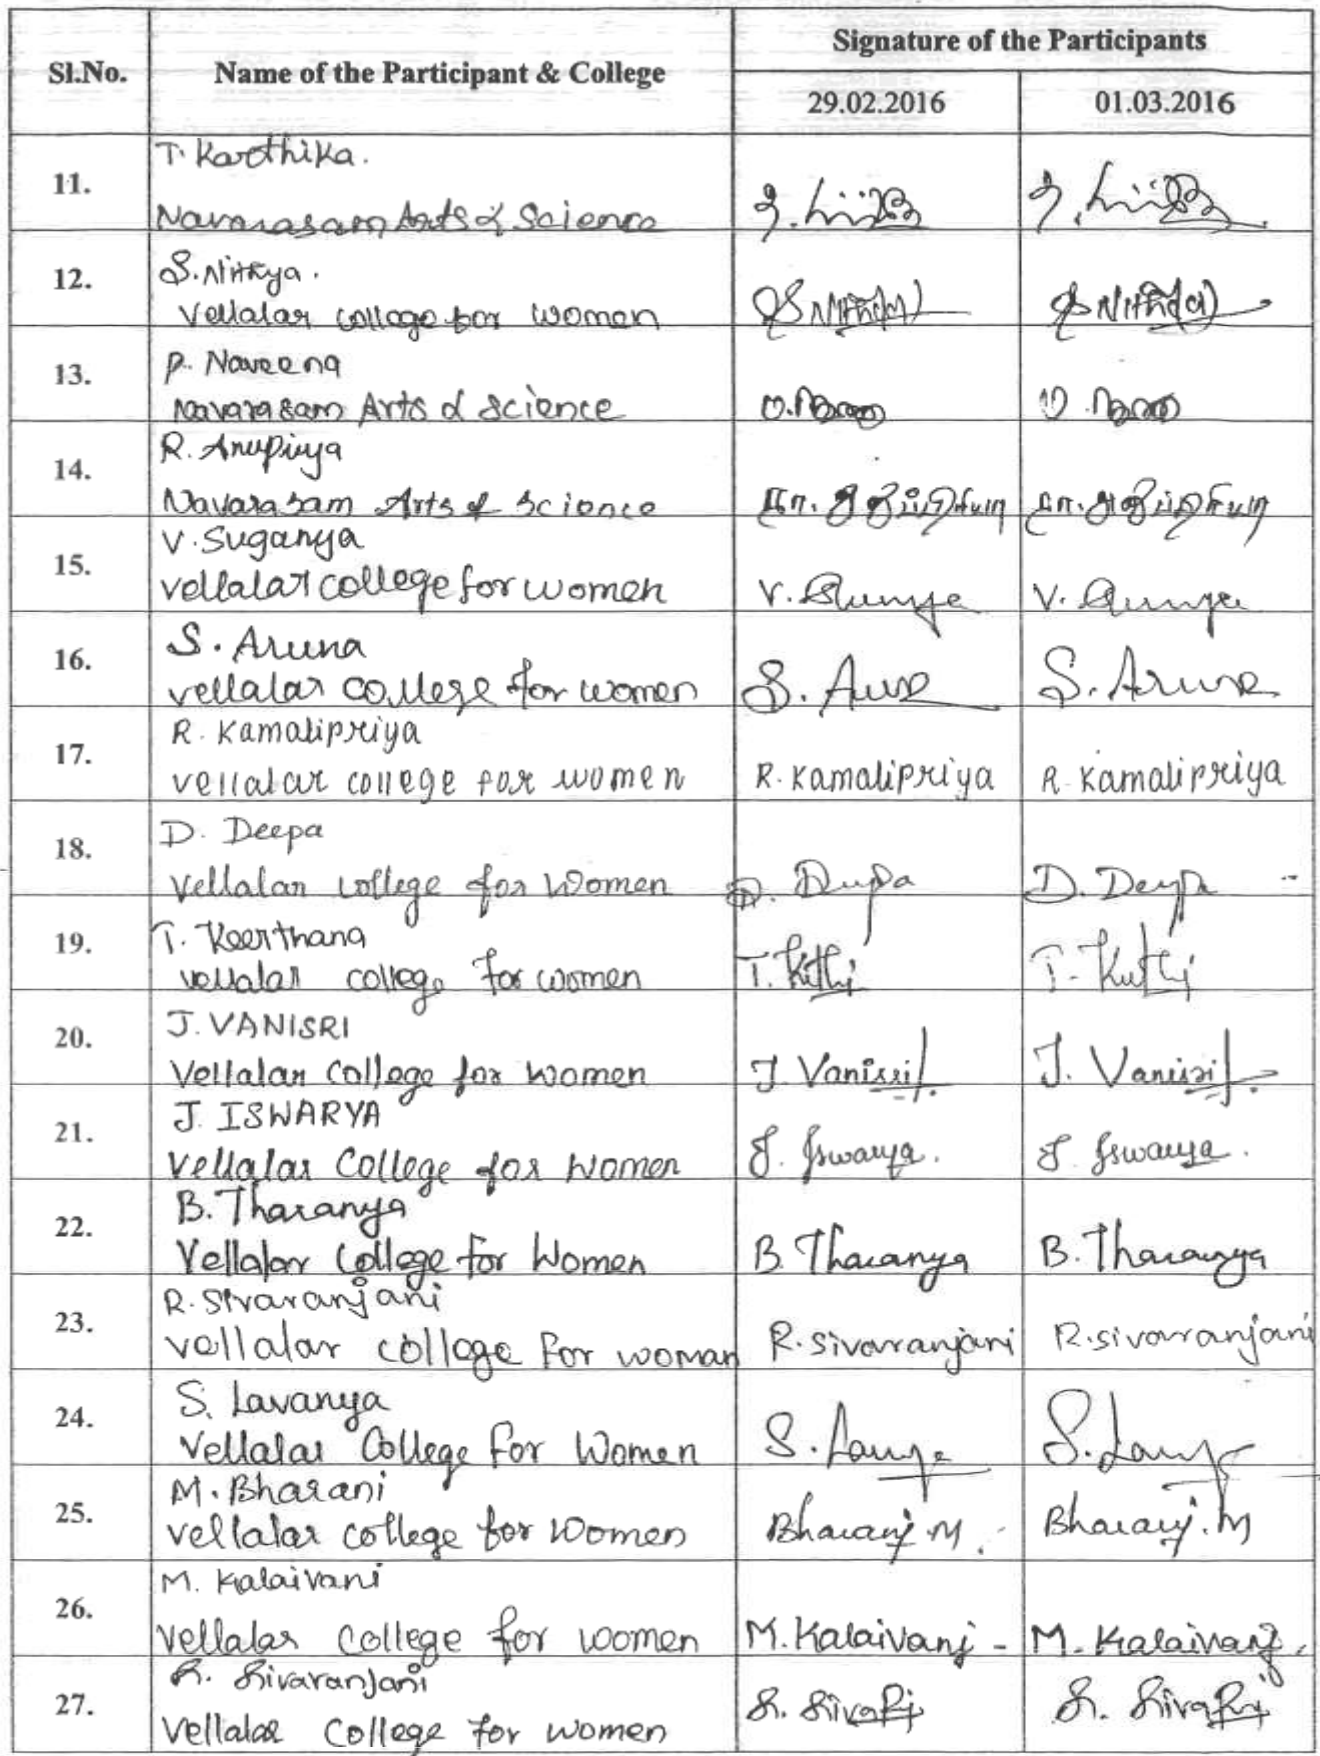 Sl.No. Name of the Participant & College Signature of the Participants
29.02.2016 01.03.2016
T. Karthika.
11.
Navarasam Arts & Science
S. Nithya.
12.
Vellalar college for women
P. Naveena
13.
Navarasam Arts & Science
R. Anupriya
14.
Navarasam Arts & Science
V. Suganya
15.
vellalar college for women V. V.
S. Aruna
16.
vellalar college for women S. S. Aruna
R. Kamalipriya
17.
vellalar college for women R. Kamalipriya R. Kamalipriya
D. Deepa
18.
Vellalar college for Women D. Deepa D. Deepa
T. Keerthana
19.
vellalar college for women T. T.
J. VANISRI
20.
Vellalar College for women J. Vanisri J. Vanisri
J. ISWARYA
21.
Vellalar College for women J. Iswarya. J. Iswarya.
B. Tharanya
22.
Vellalar College for Women B. Tharanya B. Tharanya
R. Sivaranjani
23.
vellalar college for woman R. sivaranjani R. sivaranjani
S. Lavanya
24.
Vellalar College For Women S. S.
M. Bharani
25.
vellalar college for women Bharani. M. Bharani. M
M. Kalaivani
26.
Vellalar College for women M. Kalaivani - M. Kalaivani.
S. Sivaranjani
27.
Vellalar College for women S. S.